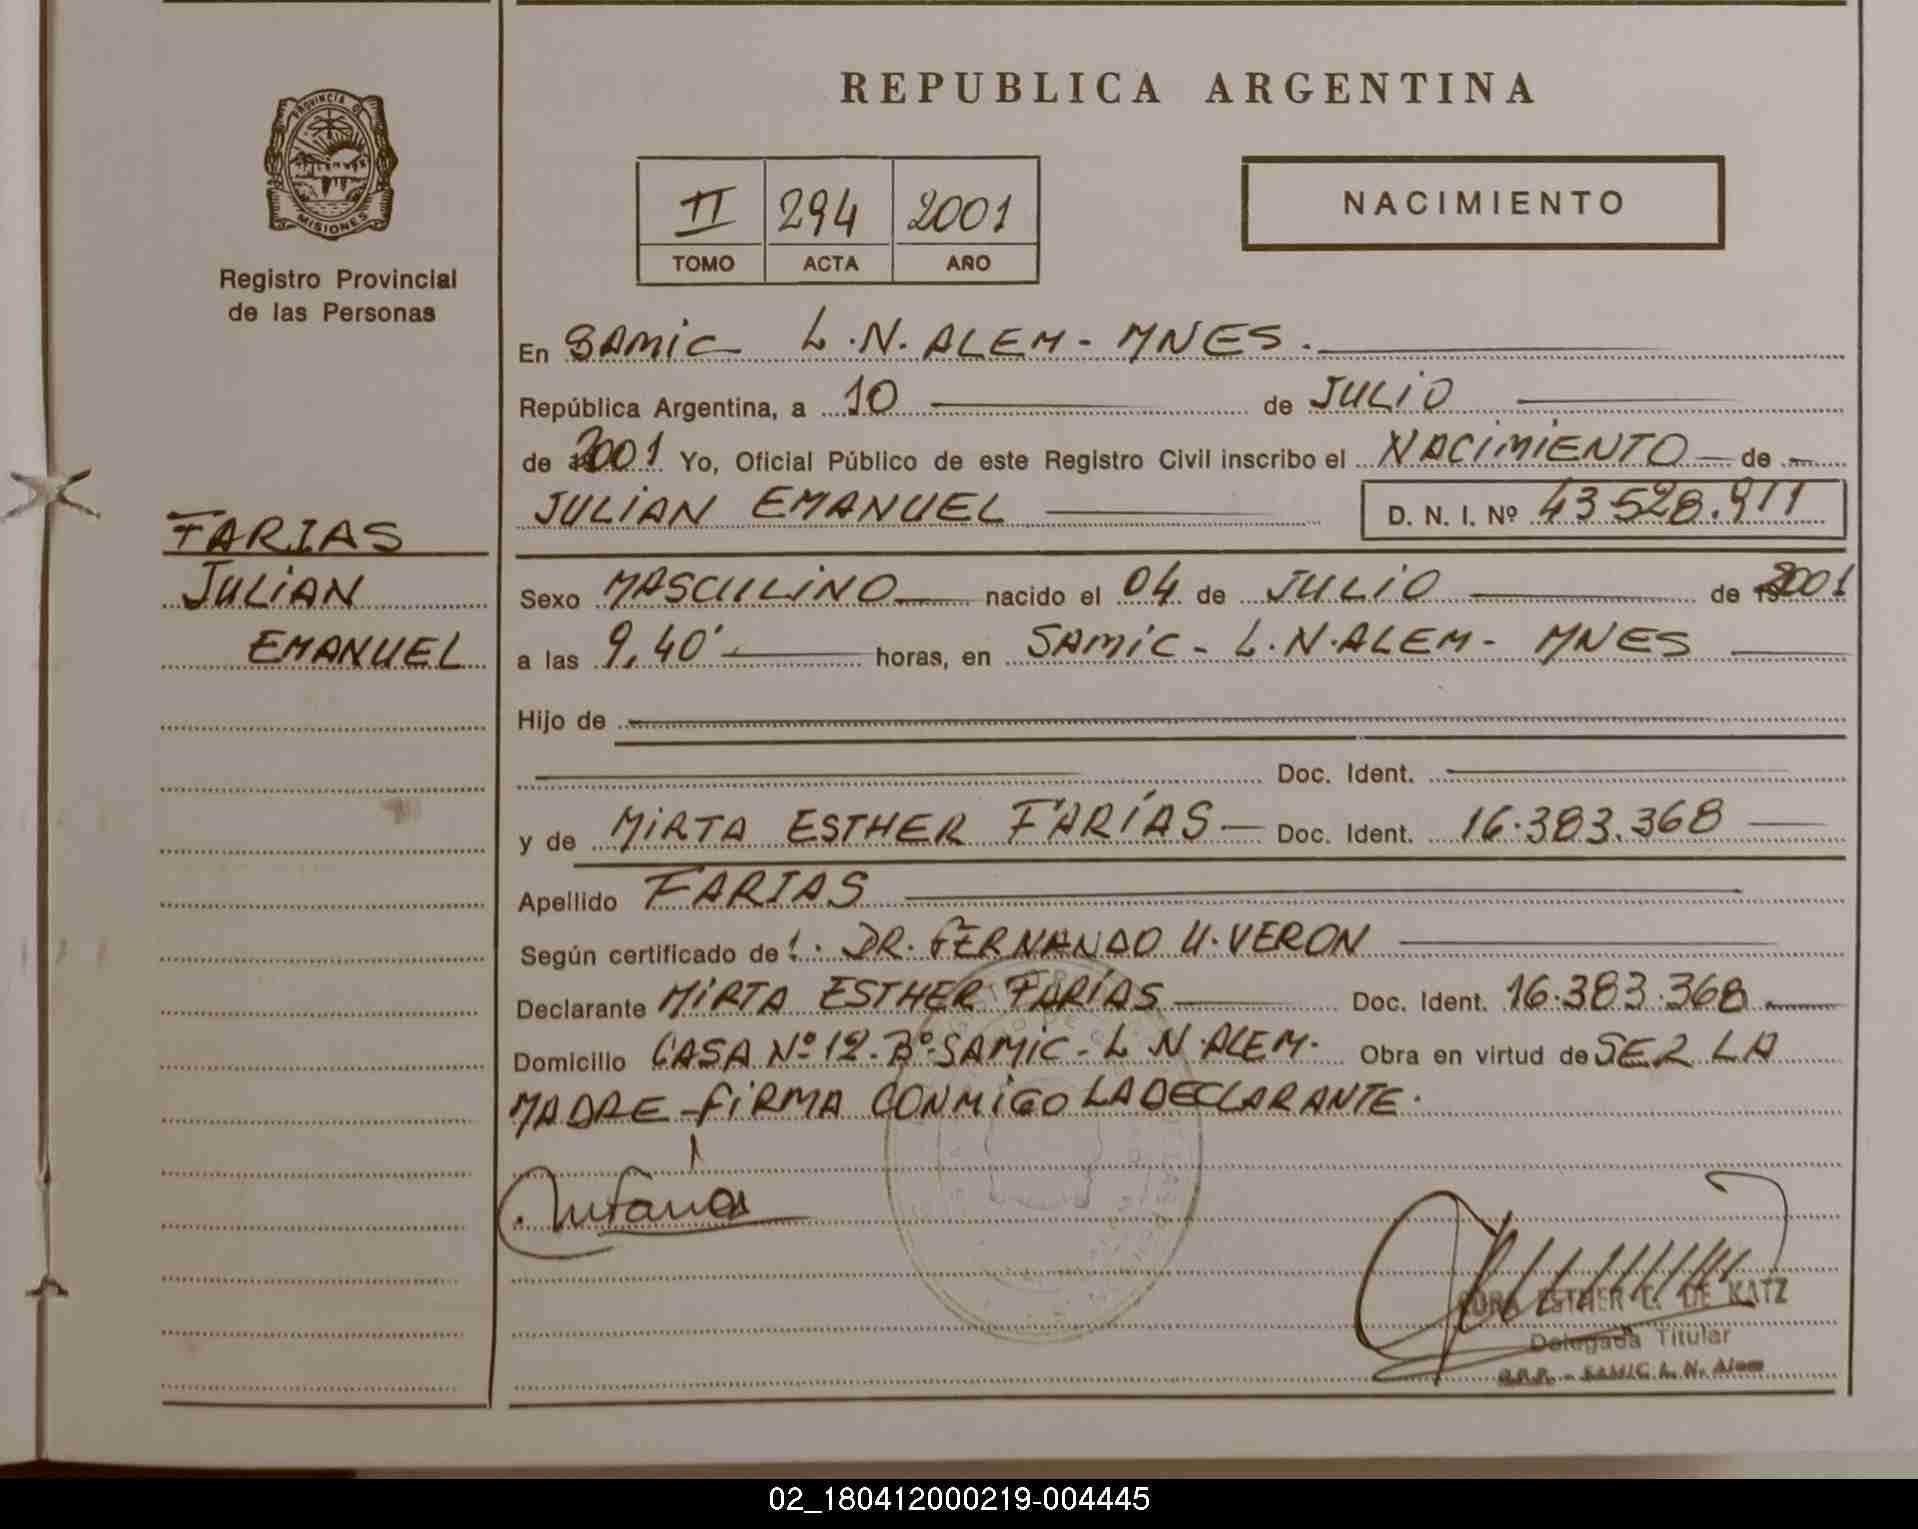 PROVINCIA D
MISIONES
Registro Provincial
de las Personas
FARIAS
JULIAN
EMANUEL
REPUBLICA ARGENTINA
II 294 2001
TOMO ACTA AÑO
NACIMIENTO
En SAMIC L.N. ALEM - MNES.
República Argentina, a 10 de JULIO
de 2001 Yo, Oficial Público de este Registro Civil inscribo el NACIMIENTO de
JULIAN EMANUEL D. N. I. Nº 43528.911
Sexo MASCULINO nacido el 04 de JULIO de 2001
a las 9,40' horas, en SAMIC - L.N. ALEM - MNES
Hijo de
Doc. Ident.
y de MIRTA ESTHER FARÍAS Doc. Ident. 16.383.368
Apellido FARIAS
Según certificado de DR. FERNANDO U. VERON
Declarante MIRTA ESTHER FARÍAS Doc. Ident. 16.383.368
Domicilio CASA Nº 12 - Bº SAMIC - L N. ALEM. Obra en virtud de SER LA
MADRE - FIRMA CONMIGO LA DECLARANTE.
ESTHER C. DE KATZ
Delegada Titular
SAMIC L. N. Alem
02_180412000219-004445